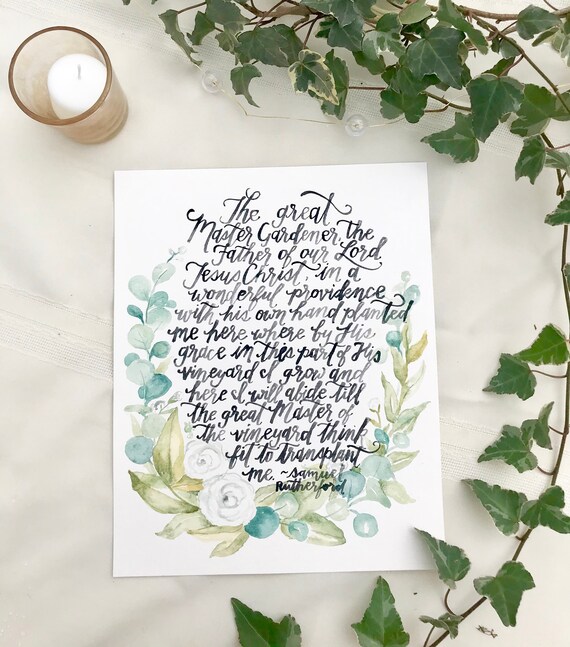 The great
Master Gardener, the
Father of our Lord,
Jesus Christ, in a
wonderful providence
with his own hand planted
me here where by His
grace in this part of His
vineyard I grow and
here I will abide till
the great Master of
the vineyard think
fit to transplant
me. ~Samuel
Rutherford